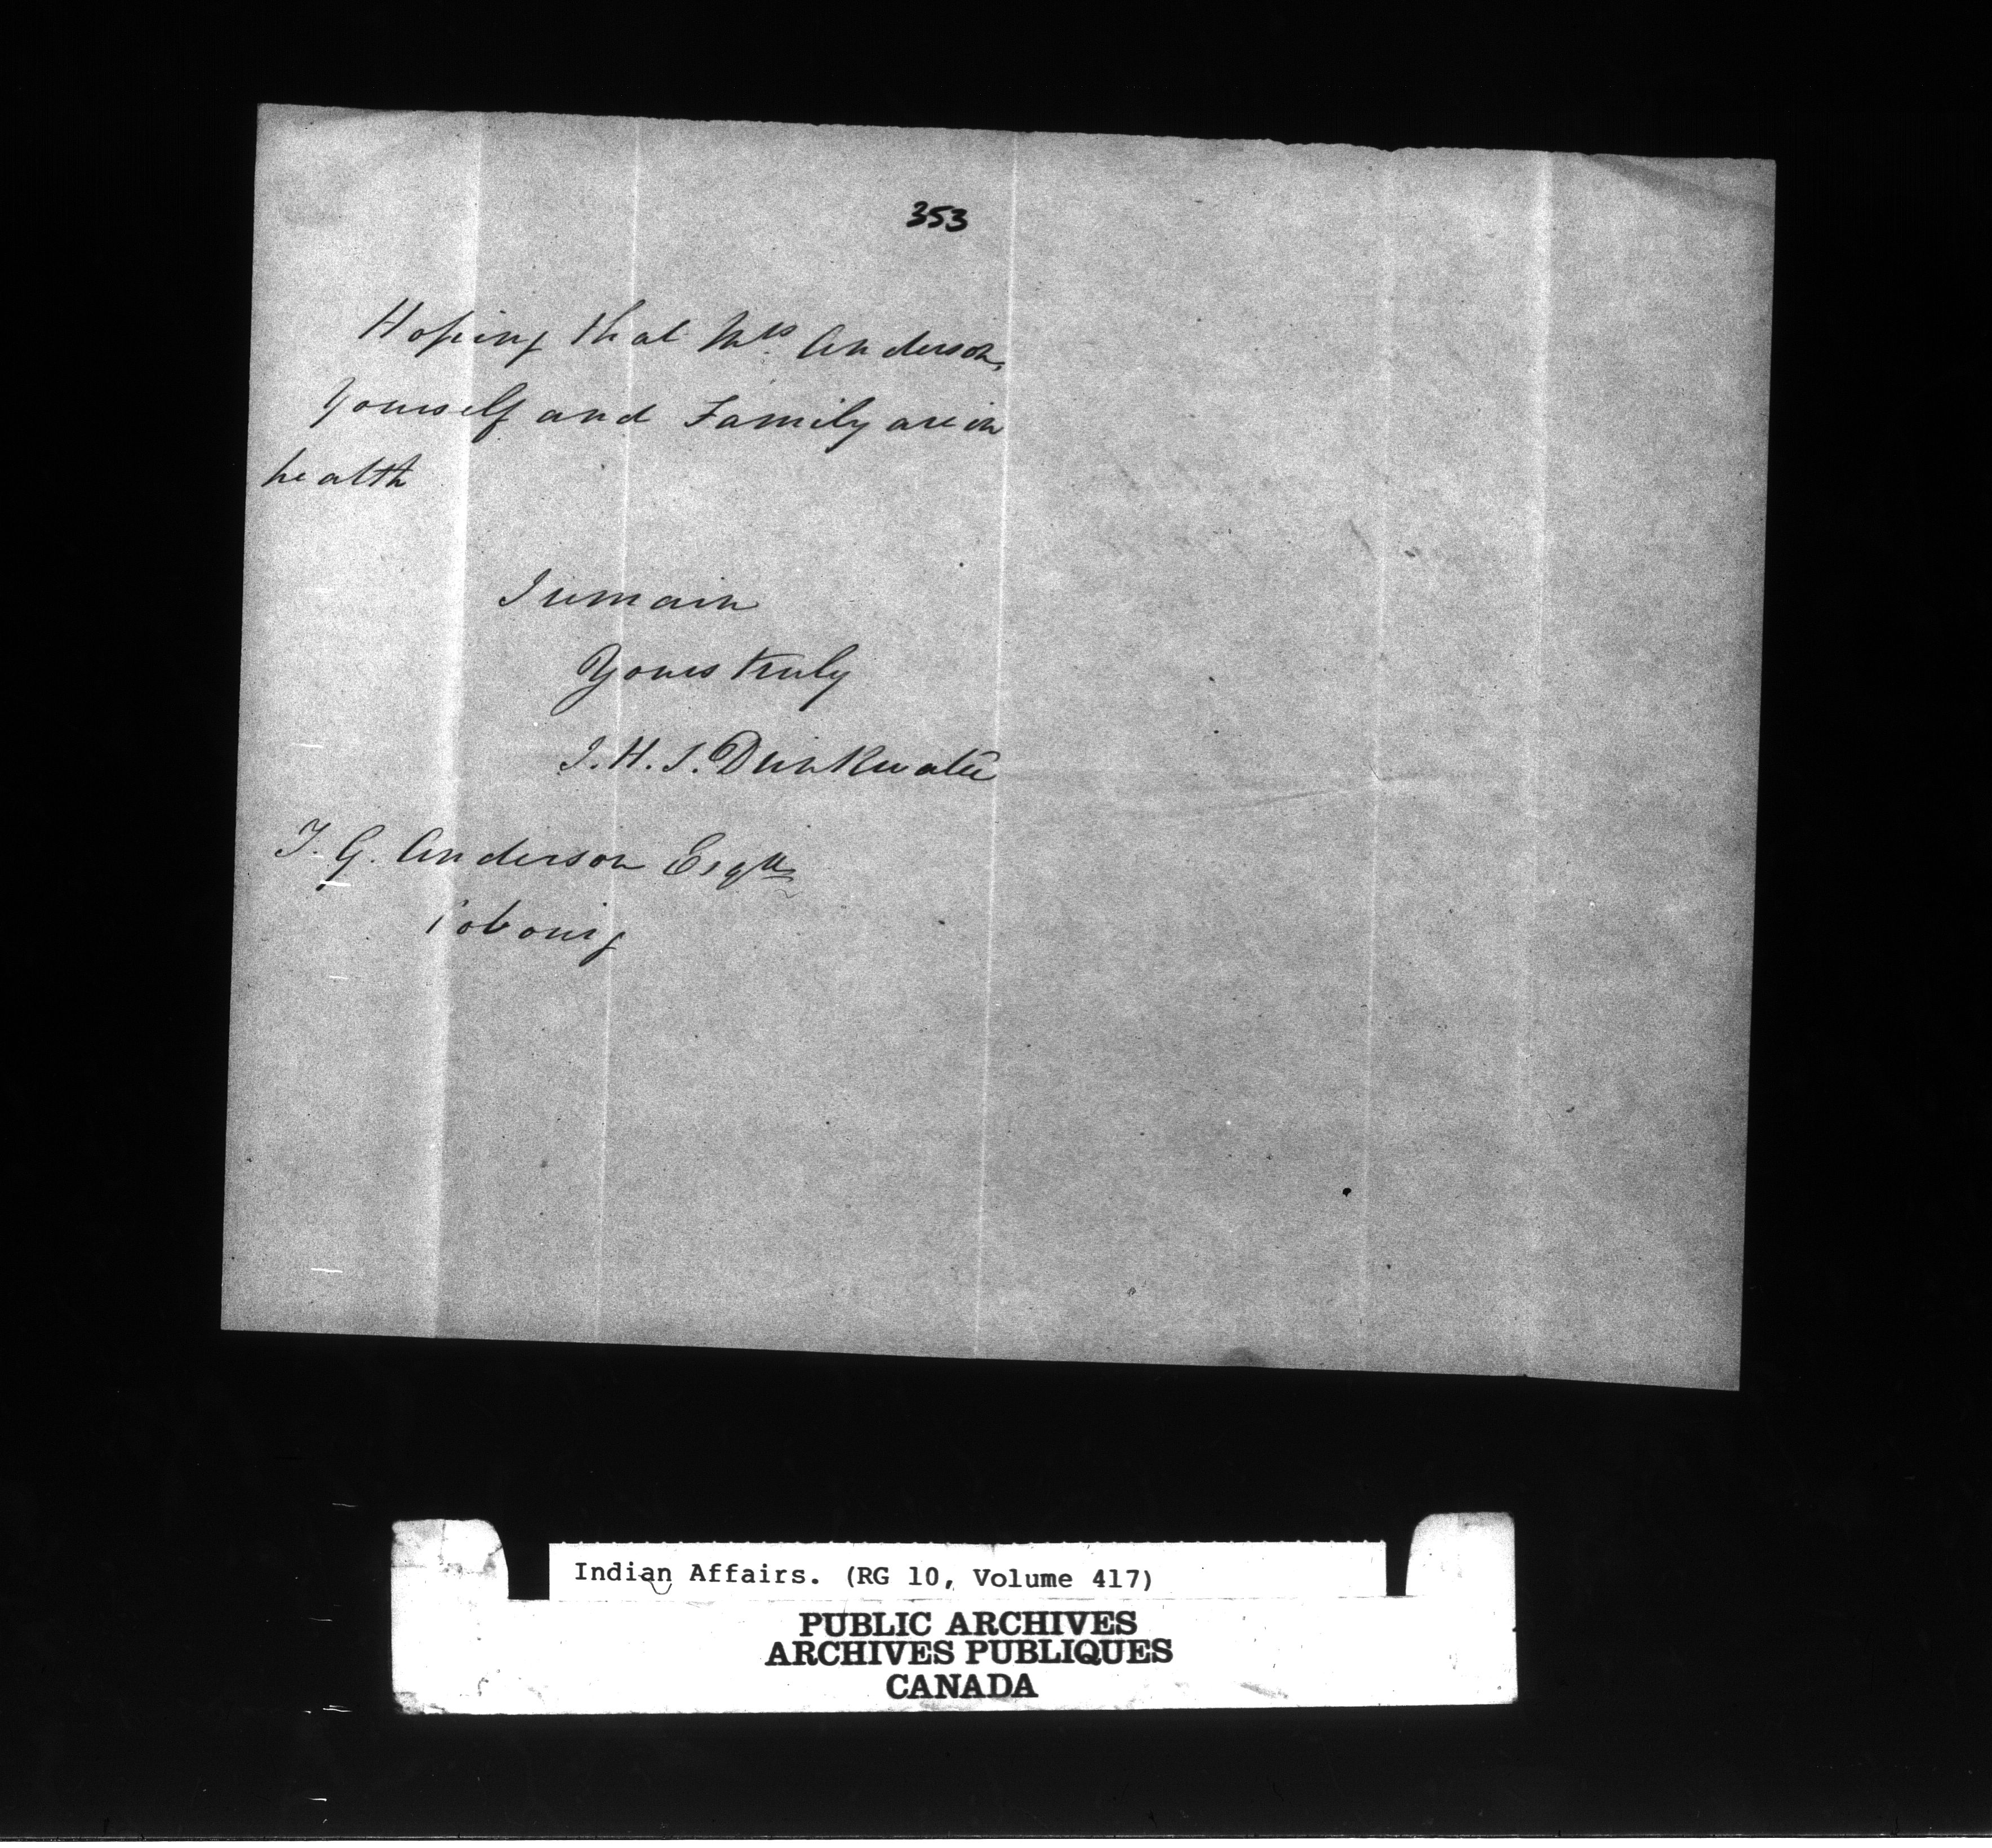 353
Hoping that Mrs. Anderson,
yourself and Family are in
health
I remain
Yours truly
J. H. S. Drinkwater
T. G. Anderson Esqre
Cobourg
Indian Affairs. (RG 10, Volume 417)
PUBLIC ARCHIVES
ARCHIVES PUBLIQUES
CANADA